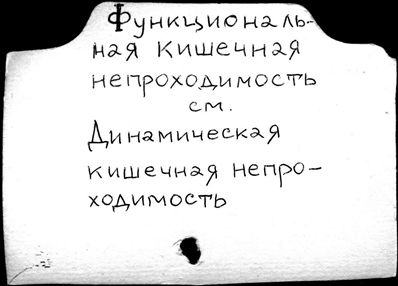 Функциональ-
ная кишечная
непроходимость
см.
Динамическая
кишечная непро-
ходимость